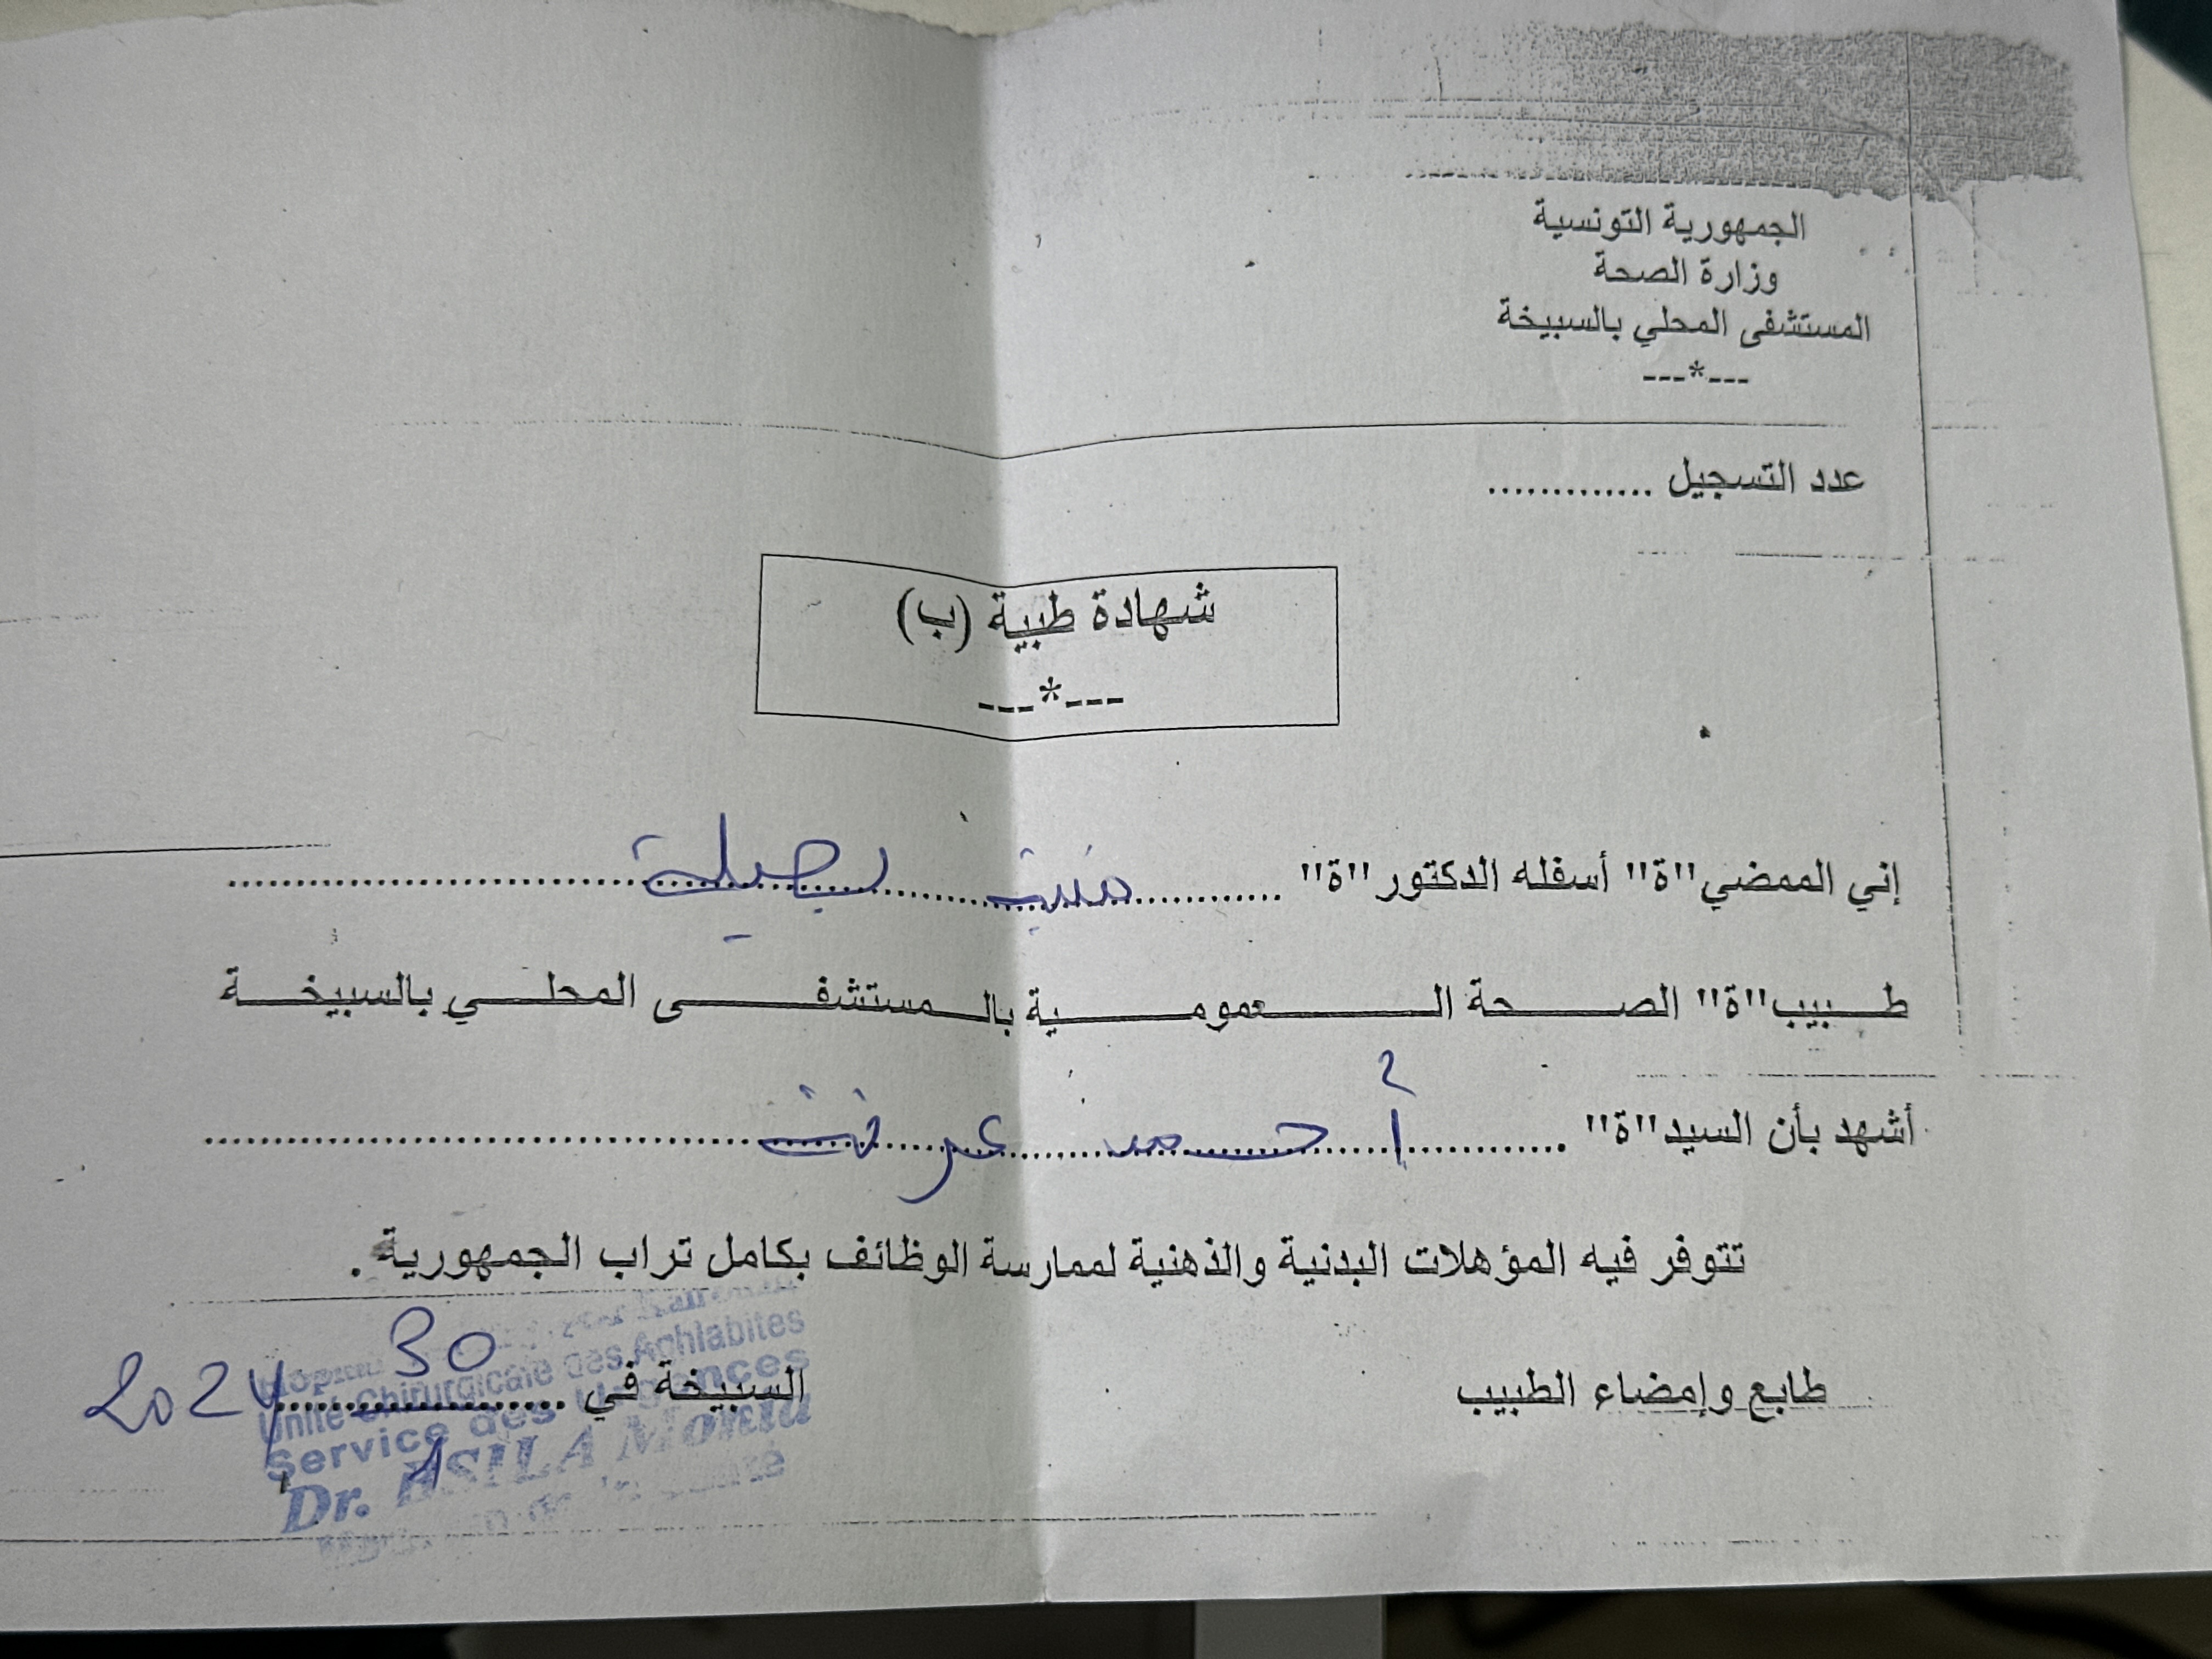 الجمهورية التونسية
وزارة الصحة
المستشفى المحلي بالسبيخة
---*---
عدد التسجيل .............
شهادة طبية (ب)
---*---
إني الممضي"ة" أسفله الدكتور"ة" ..........
طبيب"ة" الصحة العمومية بالمستشفى المحلي بالسبيخة
أشهد بأن السيد"ة" .......... أحمد عرفت
تتوفر فيه المؤهلات البدنية والذهنية لممارسة الوظائف بكامل تراب الجمهورية .
السبيخة في .......... 30 1 2024
طابع وإمضاء الطبيب
Unité Chirurgicale des Aghlabites
Service des Urgences
Dr.